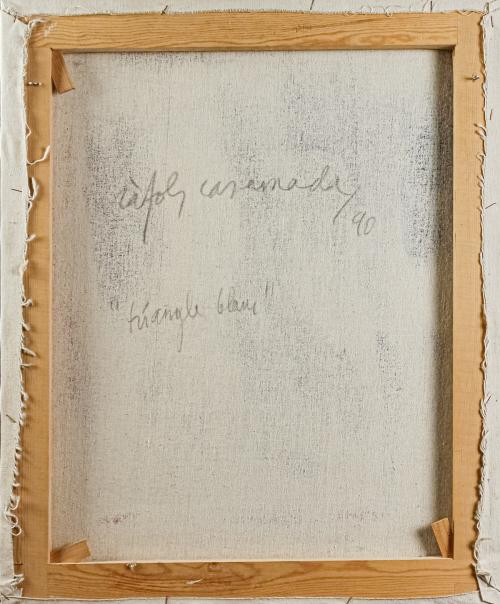 ràfols casamada
90
"triangle blanc"